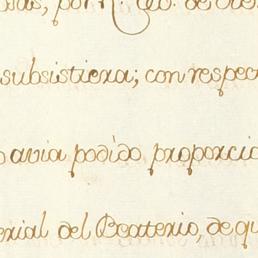 por
subsistiera; con respec
avia podido proporcio
erial del Beaterio, de qu